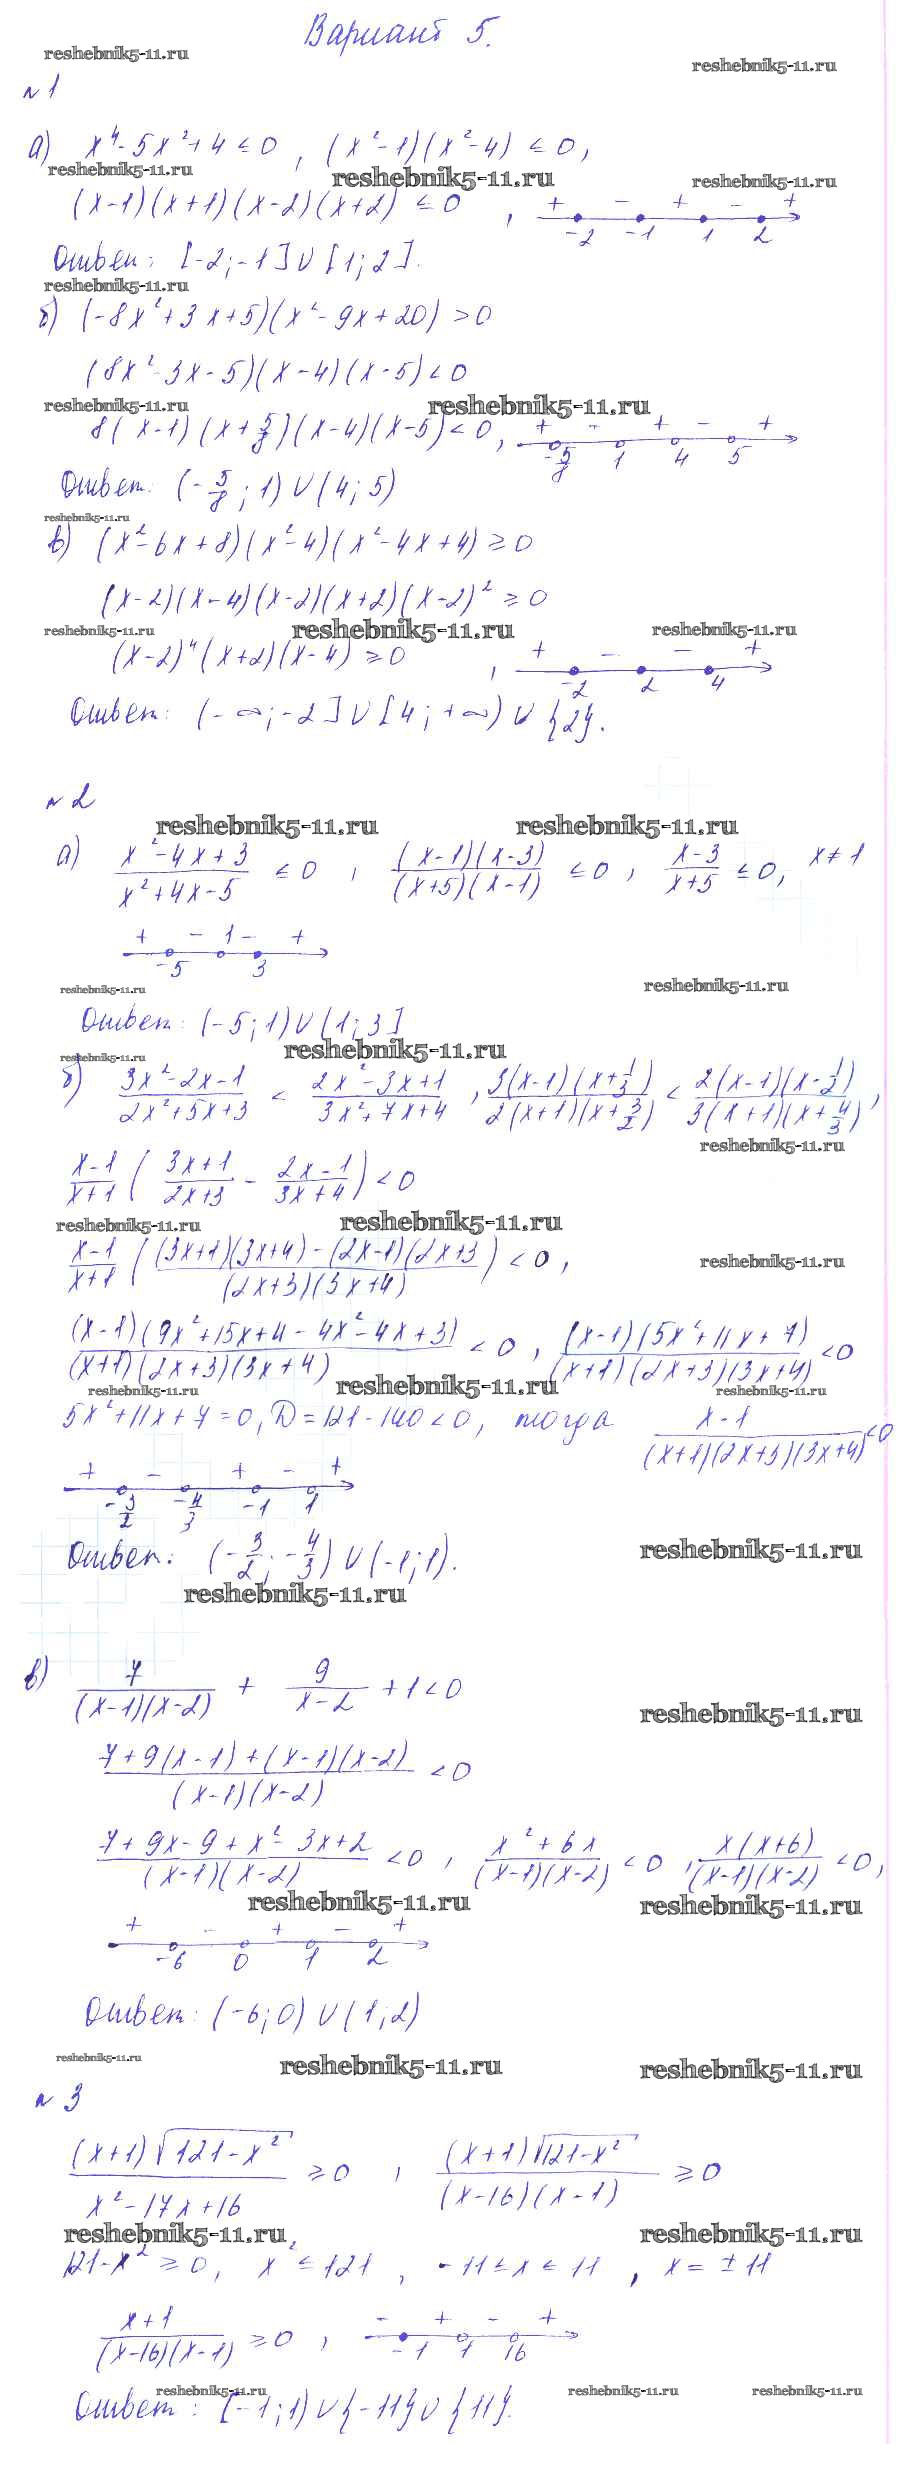 Вариант 5.
reshebnik5-11.ru
reshebnik5-11.ru
№1
а) x⁴-5x²+4≤0, (x²-1)(x²-4)≤0,
reshebnik5-11.ru reshebnik5-11.ru reshebnik5-11.ru
(x-1)(x+1)(x-2)(x+2)≤0, + - + - +
-2 -1 1 2
Ответ: [-2;-1]∪[1;2].
reshebnik5-11.ru
б) (-8x²+3x+5)(x²-9x+20)>0
(8x²-3x-5)(x-4)(x-5)<0
reshebnik5-11.ru reshebnik5-11.ru
8(x-1)(x+5/8)(x-4)(x-5)<0, + - + - +
-5/8 1 4 5
Ответ: (-5/8;1)∪(4;5)
reshebnik5-11.ru
в) (x²-6x+8)(x²-4)(x²-4x+4)≥0
(x-2)(x-4)(x-2)(x+2)(x-2)²≥0
reshebnik5-11.ru reshebnik5-11.ru reshebnik5-11.ru
(x-2)⁴(x+2)(x-4)≥0, + - - +
-2 2 4
Ответ: (-∞;-2]∪[4;+∞)∪{2}.
№2
reshebnik5-11.ru reshebnik5-11.ru
а) (x²-4x+3)/(x²+4x-5) ≤0, ((x-1)(x-3))/((x+5)(x-1)) ≤0, (x-3)/(x+5) ≤0, x≠1
+ - 1 - +
-5 3
reshebnik5-11.ru reshebnik5-11.ru
Ответ: (-5;1)∪(1;3]
reshebnik5-11.ru
reshebnik5-11.ru
б) (3x²-2x-1)/(2x²+5x+3) < (2x²-3x+1)/(3x²+7x+4), (3(x-1)(x+1/3))/(2(x+1)(x+3/2)) < (2(x-1)(x-1/2))/(3(x+1)(x+4/3)),
reshebnik5-11.ru
(x-1)/(x+1) ((3x+1)/(2x+3) - (2x-1)/(3x+4)) <0
reshebnik5-11.ru reshebnik5-11.ru
(x-1)/(x+1) (((3x+1)(3x+4)-(2x-1)(2x+3)/((2x+3)(3x+4))) <0,
reshebnik5-11.ru
((x-1)(9x²+15x+4-4x²-4x+3))/((x+1)(2x+3)(3x+4)) <0, ((x-1)(5x²+11x+7))/((x+1)(2x+3)(3x+4)) <0
reshebnik5-11.ru reshebnik5-11.ru reshebnik5-11.ru
5x²+11x+7=0, D=121-140<0, тогда (x-1)/((x+1)(2x+3)(3x+4)) <0
+ - + - +
-3/2 -4/3 -1 1
Ответ: (-3/2;-4/3)∪(-1;1).
reshebnik5-11.ru
reshebnik5-11.ru
в) 7/((x-1)(x-2)) + 9/(x-2) +1<0
reshebnik5-11.ru
(7+9(x-1)+(x-1)(x-2))/((x-1)(x-2)) <0
(7+9x-9+x²-3x+2)/((x-1)(x-2)) <0, (x²+6x)/((x-1)(x-2)) <0, (x(x+6))/((x-1)(x-2)) <0,
reshebnik5-11.ru reshebnik5-11.ru
+ - + - +
-6 0 1 2
Ответ: (-6;0)∪(1;2)
reshebnik5-11.ru reshebnik5-11.ru reshebnik5-11.ru
№3
((x+1)√(121-x²))/(x²-17x+16) ≥0, ((x+1)√(121-x²))/((x-16)(x-1)) ≥0
reshebnik5-11.ru, reshebnik5-11.ru
121-x²≥0, x²≤121, -11≤x≤11, x=±11
(x+1)/((x-16)(x-1)) ≥0, - + - +
-1 1 16
reshebnik5-11.ru reshebnik5-11.ru reshebnik5-11.ru
Ответ: [-1;1)∪{-11}∪{11}.